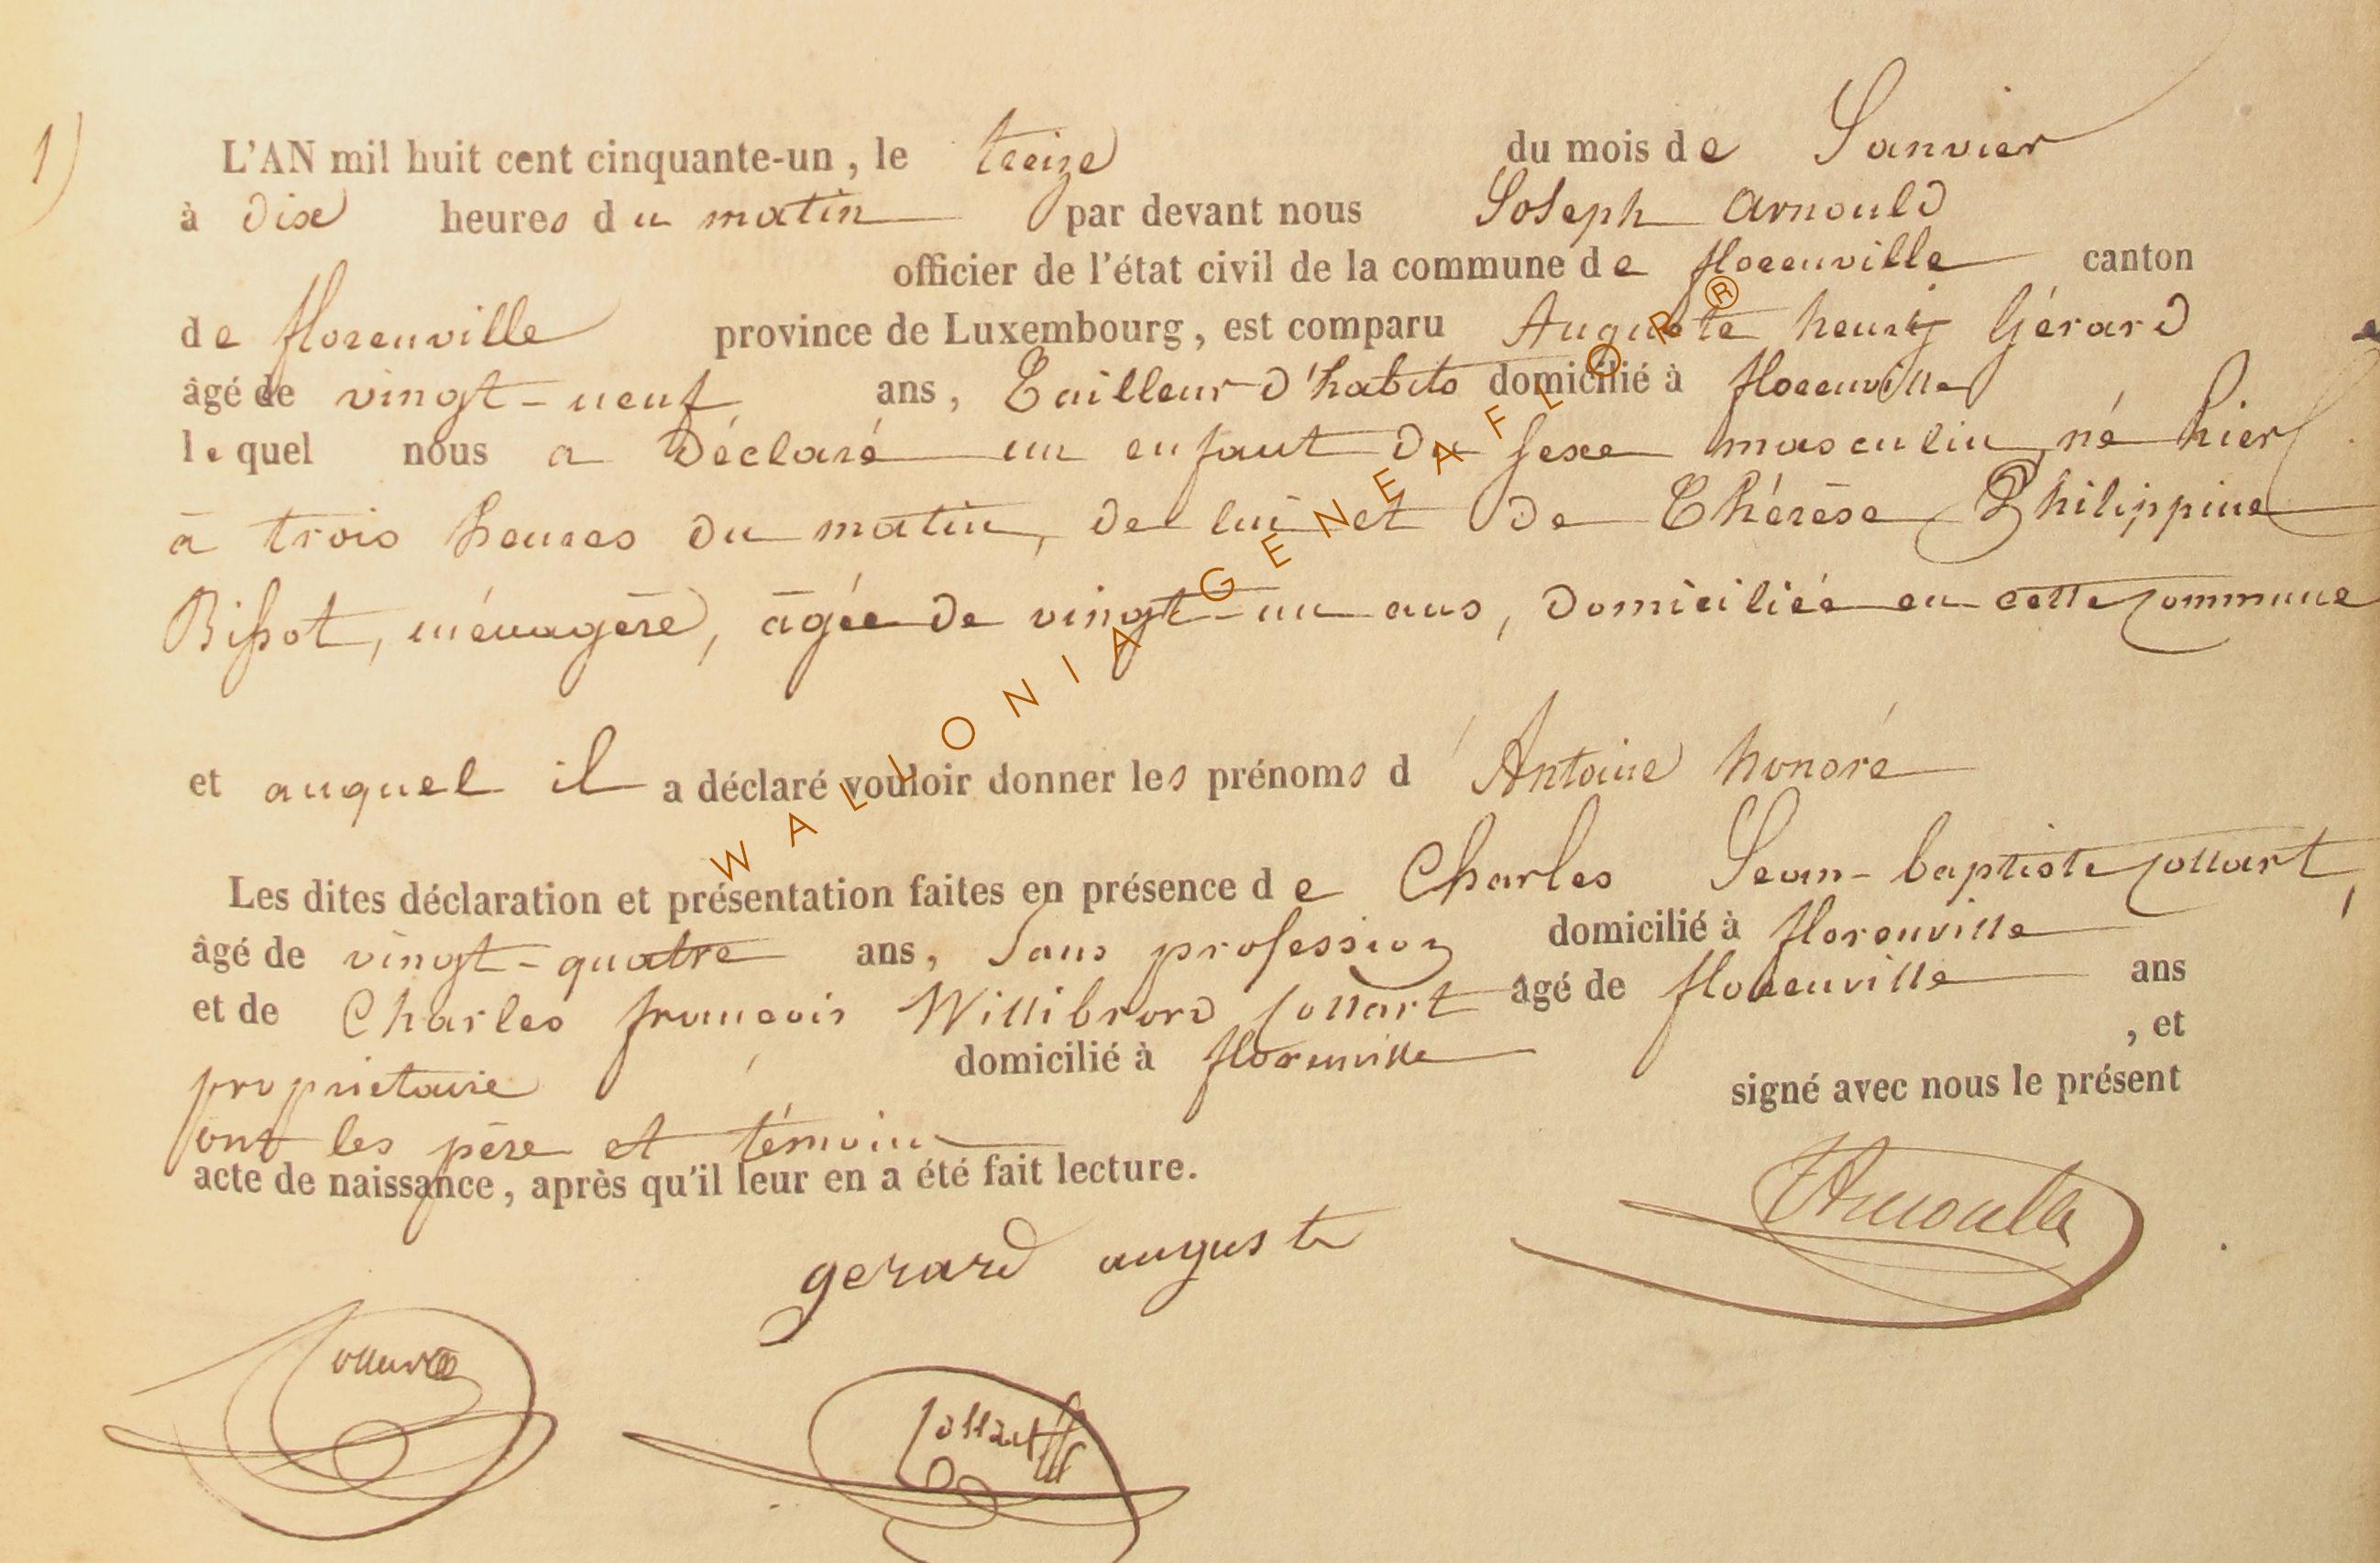 1)
L'AN mil huit cent cinquante-un, le treize du mois de Janvier
à dix heures du matin par devant nous Joseph Arnould
officier de l'état civil de la commune de florenville canton
de florenville province de Luxembourg, est comparu Auguste henry Gérard
âgé de vingt-neuf ans, Tailleur d'habits domicilié à florenville
lequel nous a Déclaré un enfant du sexe masculin, né hier
à trois heures du matin, de lui et de Thérèse Philippine
Bissot, ménagère, âgée de vingt-un ans, domiciliée en cette commune
et auquel il a déclaré vouloir donner les prénoms d'Antoine honoré
Les dites déclaration et présentation faites en présence de Charles Jean-baptiste Collart,
âgé de vingt-quatre ans, sans profession domicilié à florenville
et de Charles francois Willibrord Collart âgé de florenville ans
propriétaire domicilié à florenville, et
ont les père et témoin signé avec nous le présent
acte de naissance, après qu'il leur en a été fait lecture.
gerard auguste
JArnould
Collart
WALLONIA GENEAFLOR ®